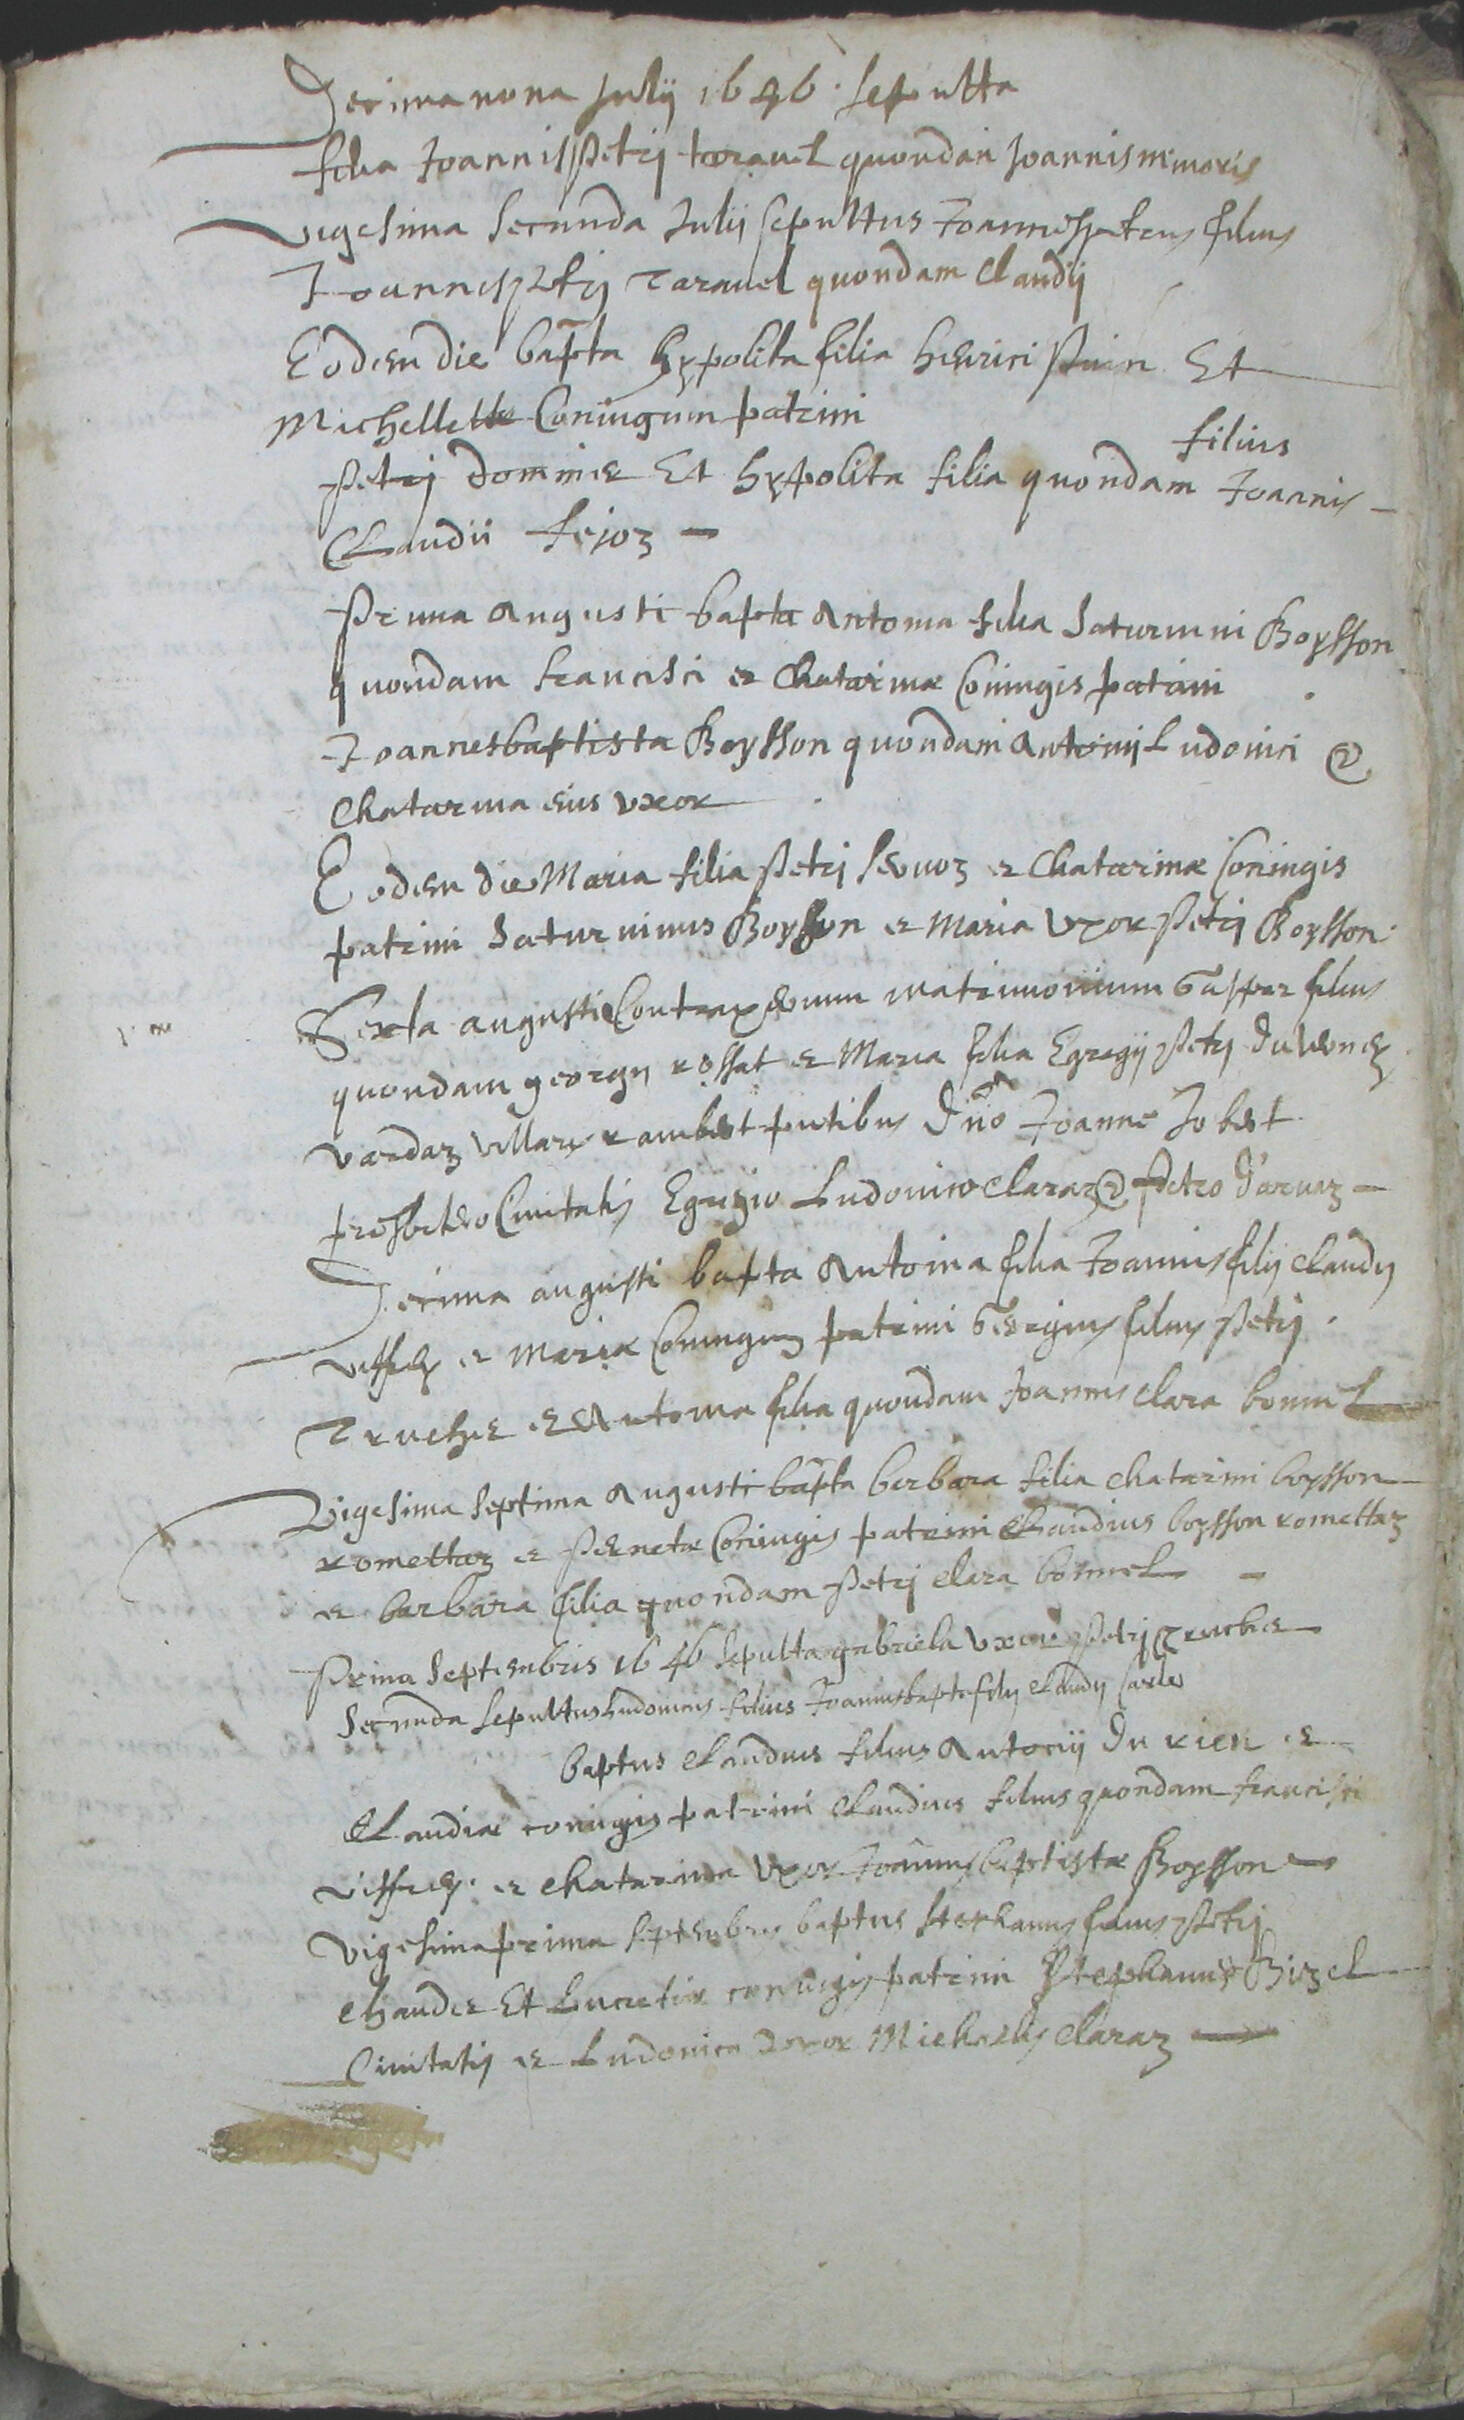 Decima nona Julÿ 1646 sepulta
filia Joannispetri taravel quondam Joannis minoris
vigesima secunda Julÿ sepultus Joannespetrus filius
Joannispetri Taravel quondam Claudÿ
Eodem die bapta hypolita filia henrici Et
Michellette Coniugum patrini
filius
Petri dominer Et hypolita filia quondam Joannis
Claudii fejoz
Prima augusti bapta Antonia filia Saturnini Boysson
quondam francisci et Chatarinæ Coniugis patrini
Joannesbaptista Boysson quondam Antonij Ludovici &
Chatarina eius uxor
Eodem die Maria filia Petri et Chatarinæ Coniugis
patrini Saturninus Boysson et Maria uxor Petri Boysson
Sexta augusti Contraxerunt matrimonium Gasper filius
quondam georgii rossat et Maria filia Egregÿ Petri du verney
vardaz Villarÿ rambert pntibus Dno Joanne Jobert
presbitero Civitatis Egregio Ludovico Claraz & Petro Daruaz
Decima augusti bapta Antonia filia Joannis filÿ Claudÿ
viffrey et Mariæ Coniugum patrini Georgius filius Petri
Truchet et Antonia filia quondam Joannis Clara bonnel
Vigesima septima Augusti bapta barbara filia Chatarini boysson
romettaz et Pernetæ Coniugis patrini Claudius boysson romettaz
et barbara filia quondam Petri Clara bonnel
Prima Septembris 1646 sepulta gabriela uxor Petri Truchet
Secunda sepultus Ludovicus filius Joannisbapte filÿ Claudÿ Carle
baptus Claudius filius Antonÿ Du rien et
Claudiæ coniugis patrini Claudius filius quondam francisci
viffrey et Chatarina uxor Joannisbaptistæ Boysson
Vigesimaprima septembris baptus Stephanus filius Petri
Chauder Et Lucretiæ coniugis patrini Stephanus Bizel
Civitatis et Ludovica uxor Michaelis Claraz